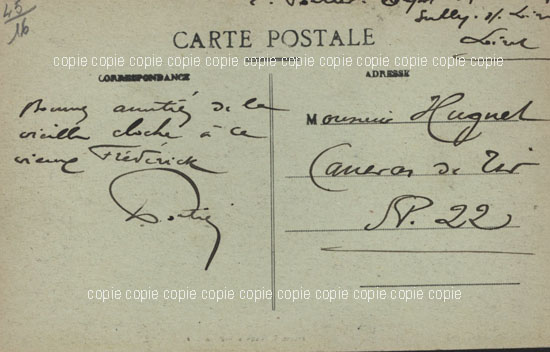 45
16
Sully s/ Loire
Loiret
CARTE POSTALE
copie copie copie copie copie copie copie copie copie copie copie
CORRESPONDANCE
ADRESSE
Bonne amitié de la
vieille cloche à ce
vieux Frédérick
Monsieur Huguet
de Tir
N. 22
copie copie copie copie copie copie copie copie copie copie